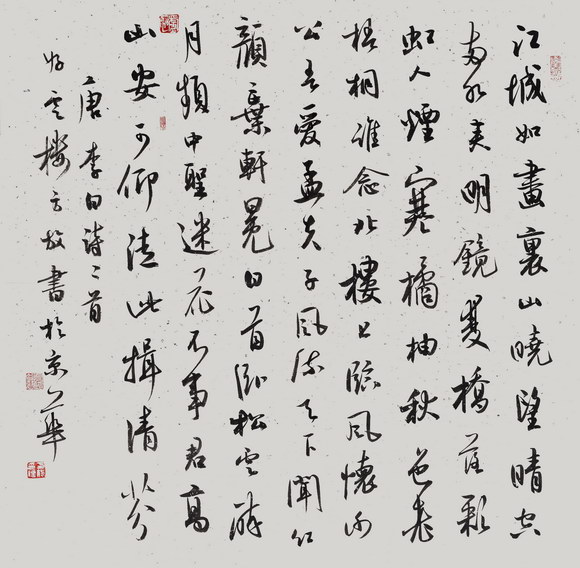 江城如畫裏山曉望晴空
兩水夾明鏡雙橋落彩
虹人煙寒橘柚秋色老
梧桐誰念北樓上臨風懷謝
公吾愛孟夫子風流天下聞紅
顏棄軒冕白首臥松雲醉
月頻中聖迷花不事君高
山安可仰徒此揖清芬
唐李白詩二首
雲樓方放書於京華